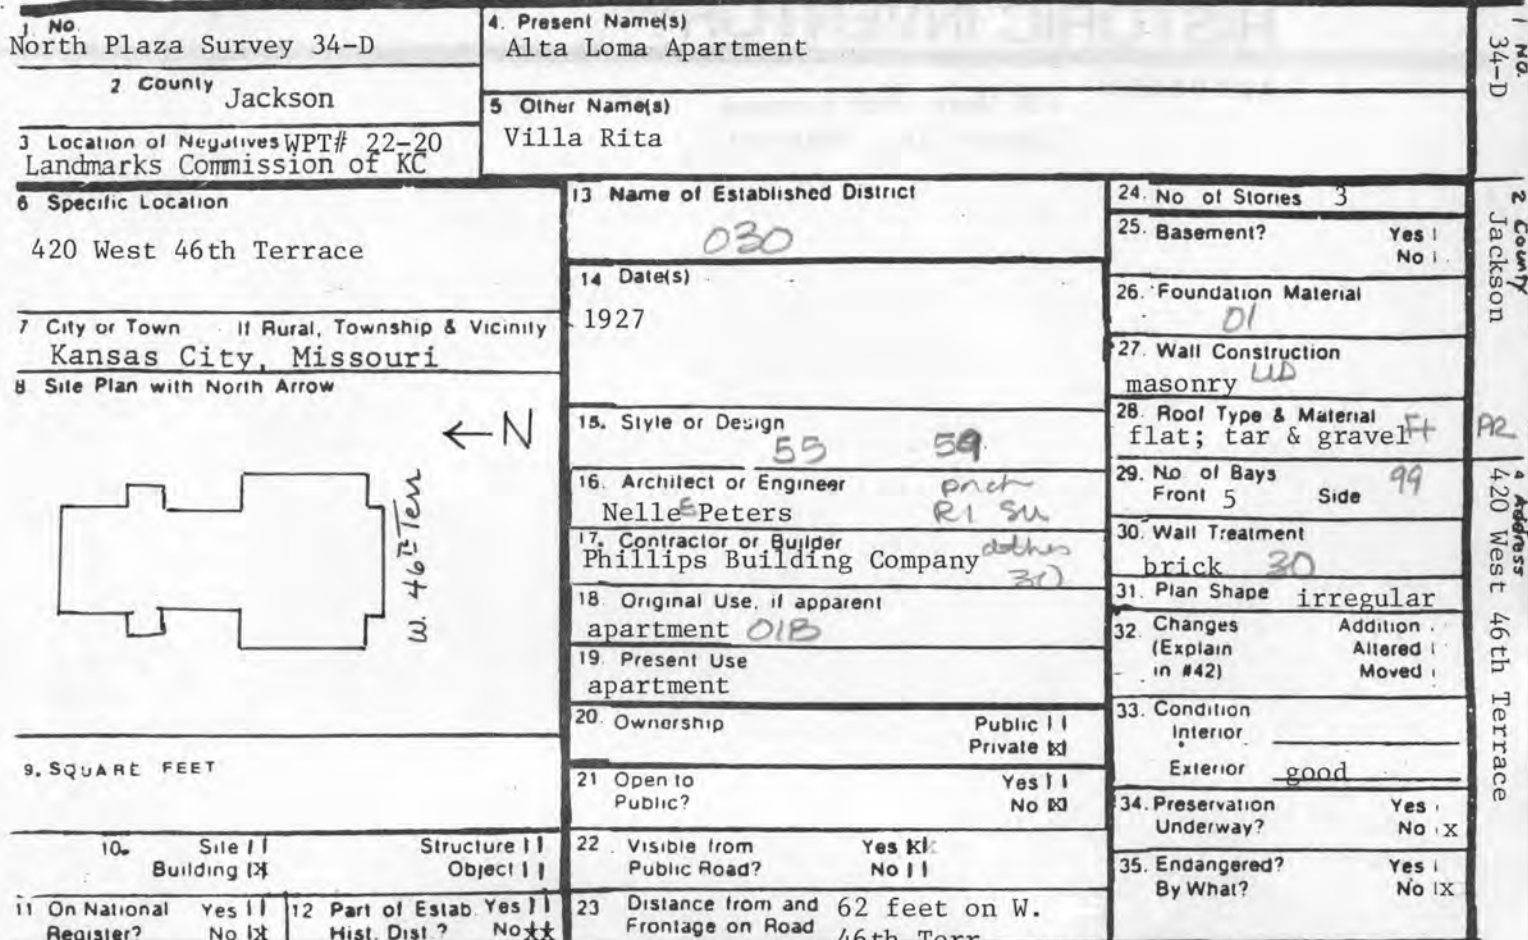 1 No.
North Plaza Survey 34-D
2 County Jackson
3 Location of Negatives WPT# 22-20
Landmarks Commission of KC
4. Present Name(s)
Alta Loma Apartment
5 Other Name(s)
Villa Rita
6 Specific Location
420 West 46th Terrace
7 City or Town If Rural, Township & Vicinity
Kansas City, Missouri
8 Site Plan with North Arrow
N
W. 46th Terr
9. SQUARE FEET
10. Site Structure
Building X Object
11 On National Yes
Register? No X
12 Part of Estab. Yes
Hist. Dist.? No XX
13 Name of Established District
030
14 Date(s)
1927
15. Style or Design
55 59
16. Architect or Engineer
Nelle E Peters
17. Contractor or Builder
Phillips Building Company
18. Original Use, if apparent
apartment 01B
19. Present Use
apartment
20. Ownership Public
Private X
21 Open to Yes
Public? No X
22. Visible from Yes X
Public Road? No
23 Distance from and 62 feet on W.
Frontage on Road 46th Terr
24. No of Stories 3
25. Basement? Yes
No
26. Foundation Material
01
27. Wall Construction
masonry
28. Roof Type & Material
flat; tar & gravel Ft
29. No of Bays 99
Front 5 Side
30. Wall Treatment
brick 30
31. Plan Shape irregular
32. Changes Addition
(Explain Altered
in #42) Moved
33. Condition
Interior
Exterior good
34. Preservation Yes
Underway? No X
35. Endangered? Yes
By What? No X
1 No.
34-D
2 County
Jackson
4 Address
420 West 46th Terrace